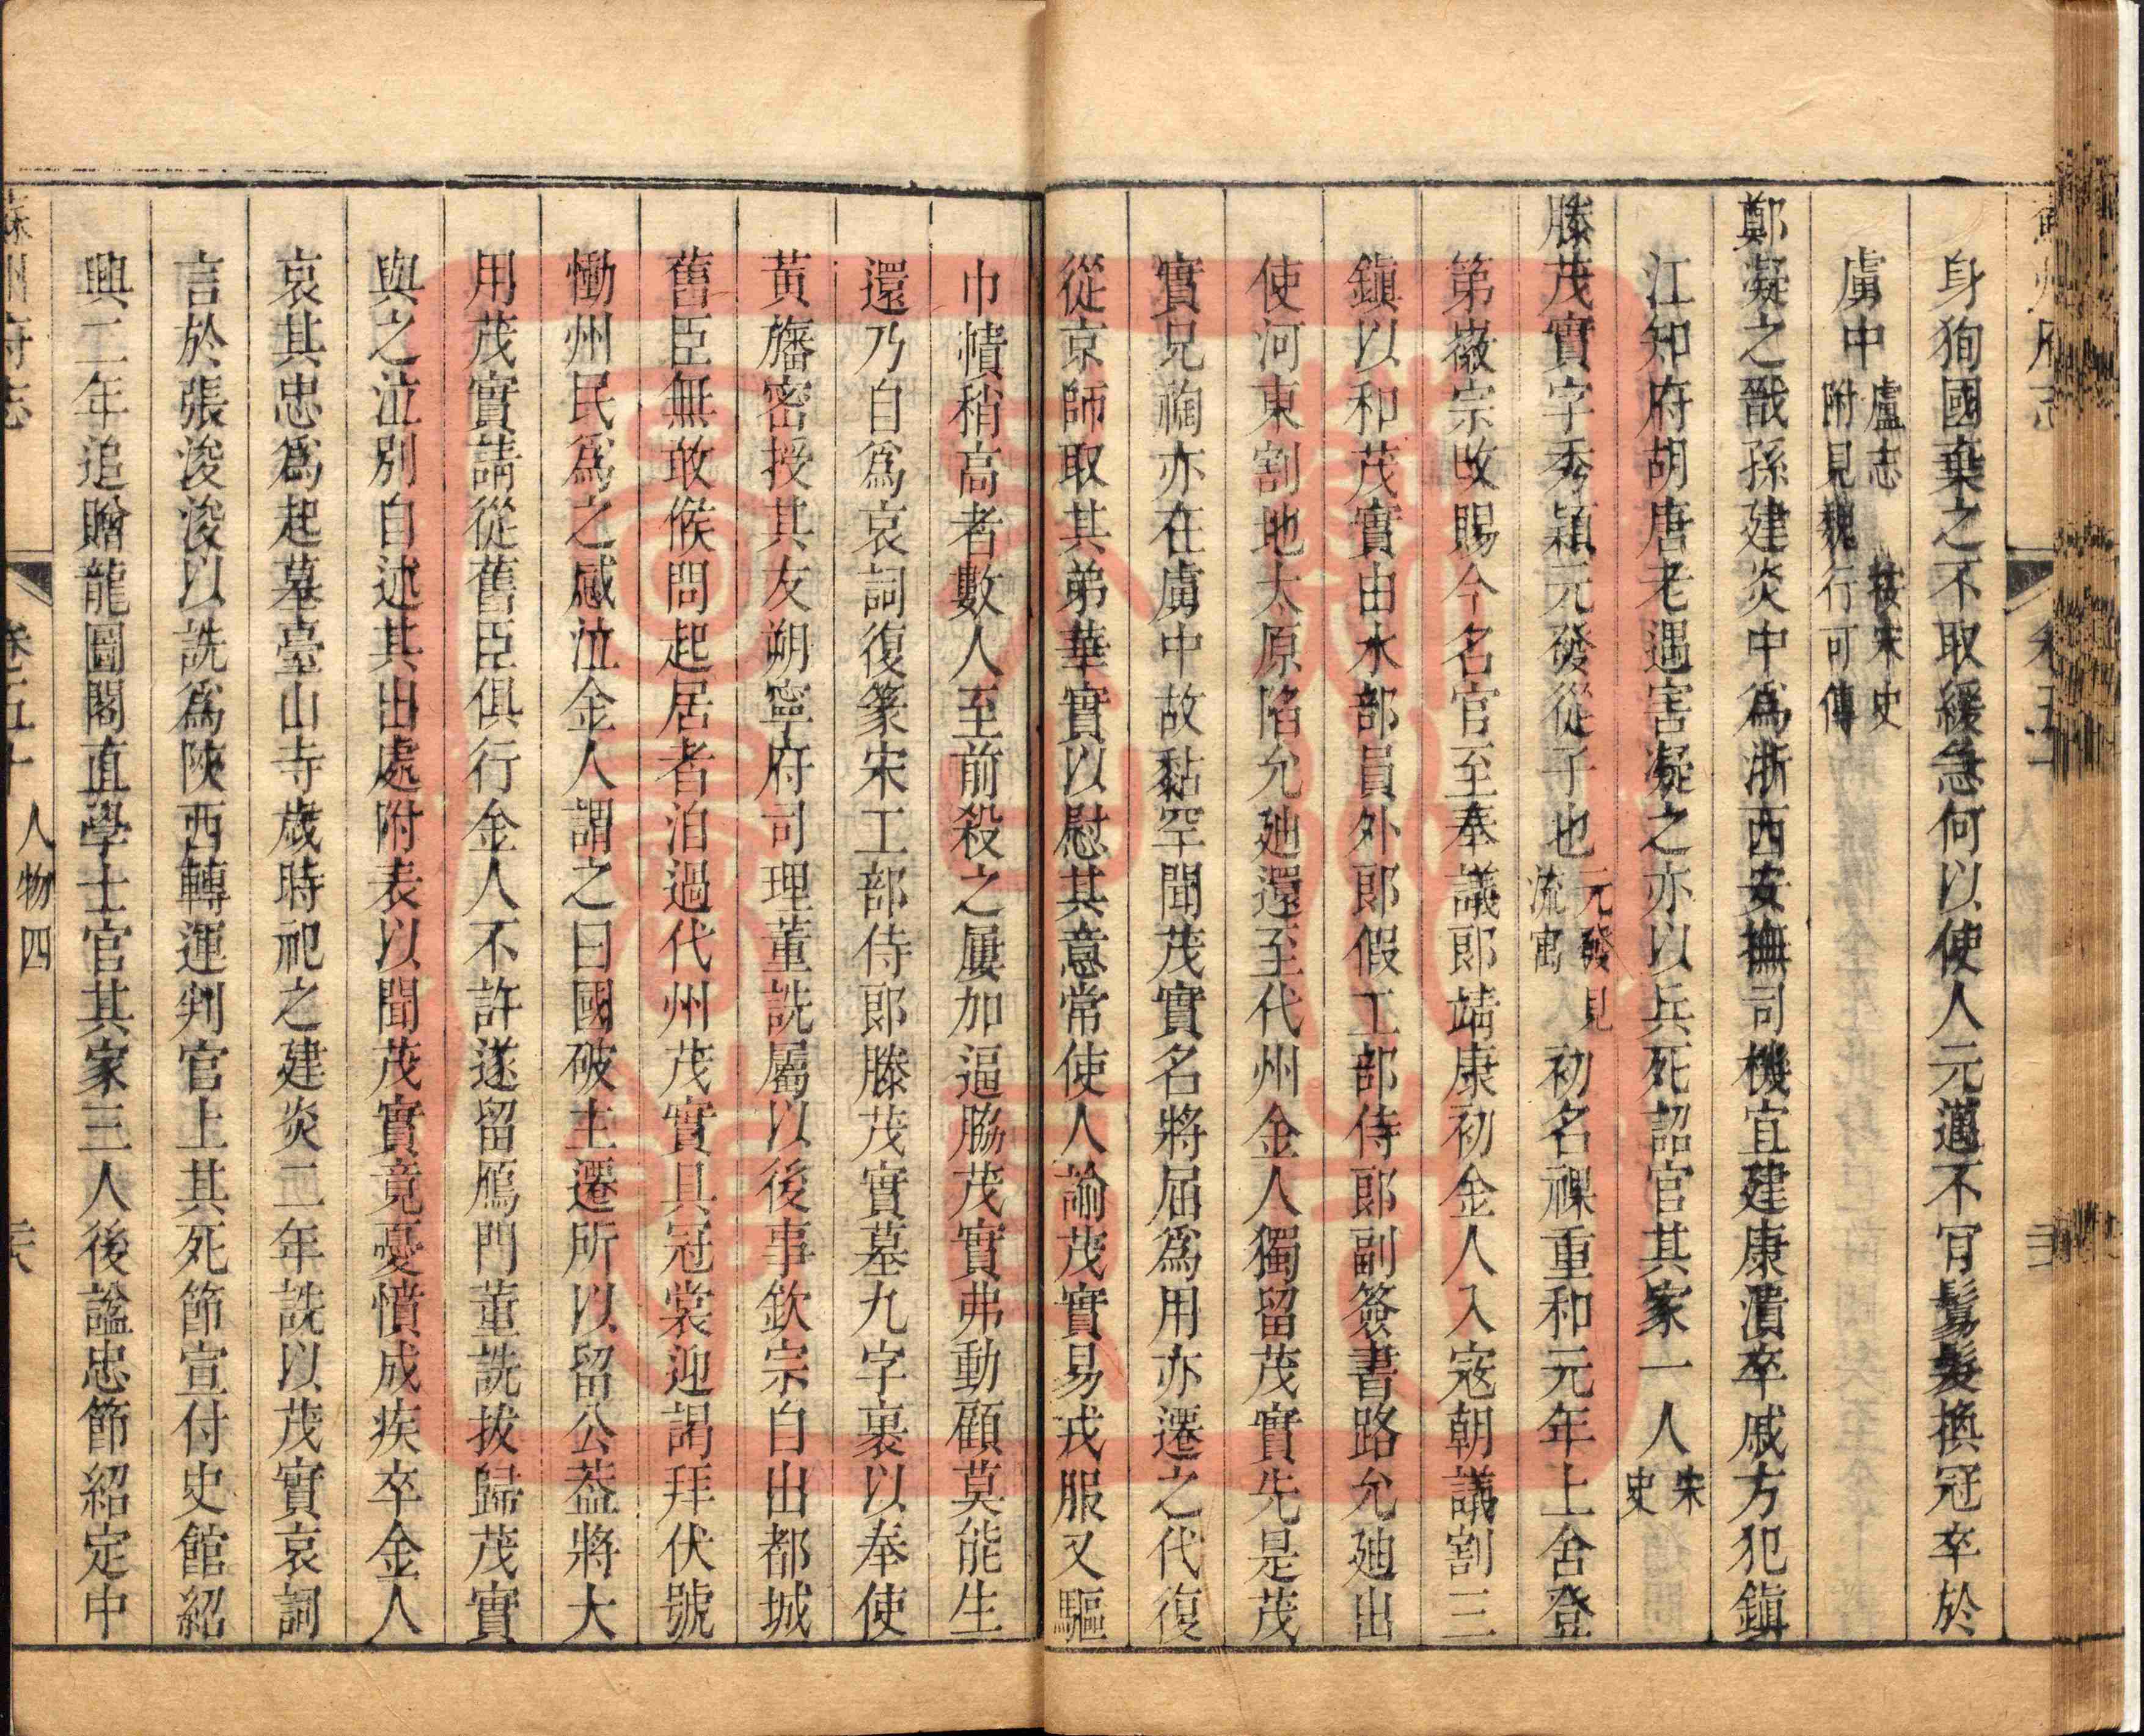 身狥國棄之不取緩急何以使人元邁不肎鬄髮換冠卒於
虜中盧志 按宋史附見魏行可傳
鄭凝之戩孫建炎中爲浙西安撫司機宜建康潰卒戚方犯鎭
江知府胡唐老遇害凝之亦以兵死詔官其家一人宋史
滕茂實字秀穎元發從子也元發見流寓初名祼重和元年上舍登
第徽宗改賜今名官至奉議郎靖康初金人入寇朝議割三
鎭以和茂實由水部員外郎假工部侍郎副簽書路允廸出
使河東割地太原陷允廸還至代州金人獨留茂實先是茂
實兄祹亦在虜中故黏罕聞茂實名將屈爲用亦遷之代復
從京師取其弟華實以慰其意常使人諭茂實易戎服又驅
巾幘稍高者數人至前殺之屢加逼脇茂實弗動顧莫能生
還乃自爲哀詞復篆宋工部侍郎滕茂實墓九字裹以奉使
黃旛密授其友朔寧府司理董詵屬以後事欽宗自出都城
舊臣無敢候問起居者洎過代州茂實具冠裳迎謁拜伏號
慟州民爲之感泣金人謂之曰國破主遷所以留公葢將大
用茂實請從舊臣俱行金人不許遂留鴈門董詵拔歸茂實
與之泣別自述其出處附表以聞茂實竟憂憤成疾卒金人
哀其忠爲起墓臺山寺歲時祀之建炎二年詵以茂實哀詞
言於張浚浚以詵爲陝西轉運判官上其死節宣付史館紹
興二年追贈龍圖閣直學士官其家三人後諡忠節紹定中
蘇州府志 卷五十 人物四